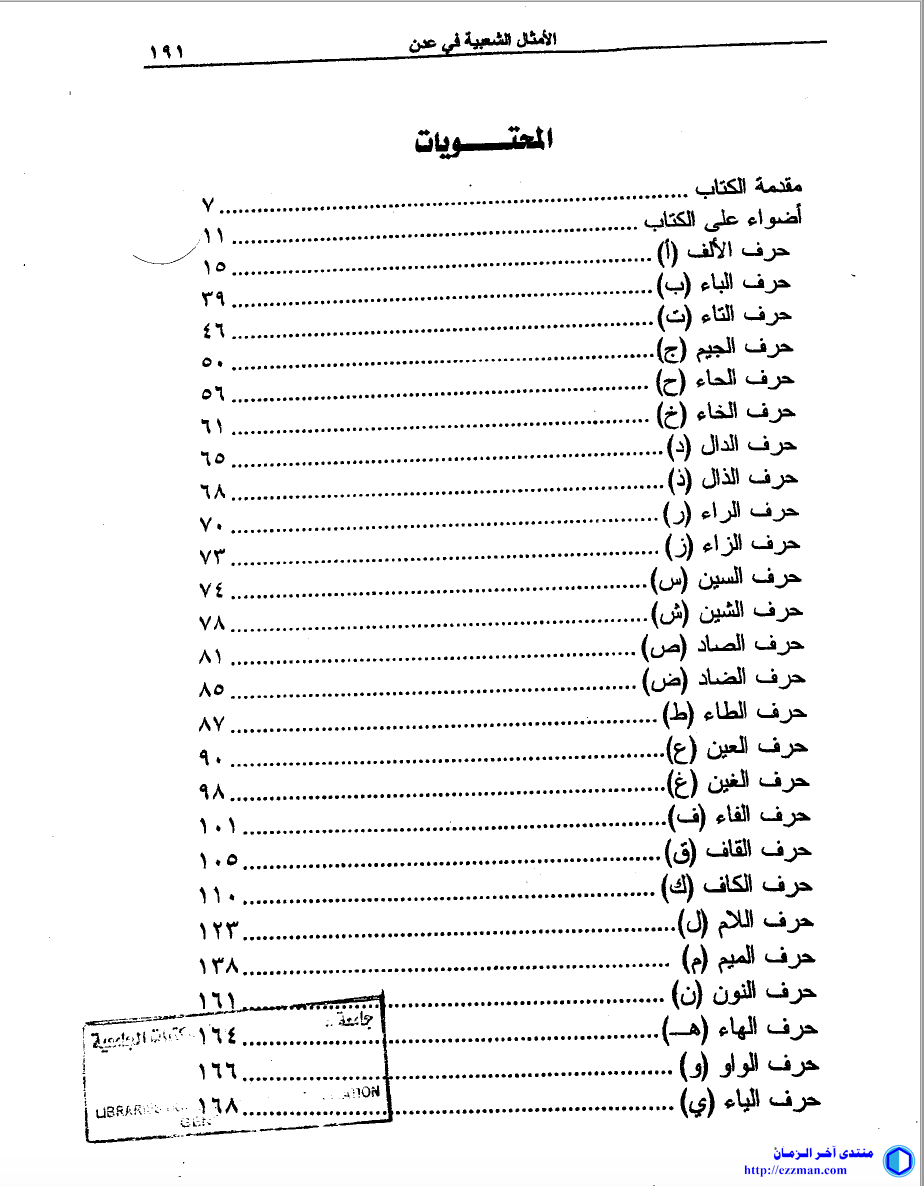 الأمثال الشعبية في عدن ١٩١
المحتـــــويات
مقدمة الكتاب ........ ٧
أضواء على الكتاب ........ ١١
حرف الألف (أ) ........ ١٥
حرف الباء (ب) ........ ٣٩
حرف التاء (ت) ........ ٤٦
حرف الجيم (ج) ........ ٥٠
حرف الحاء (ح) ........ ٥٦
حرف الخاء (خ) ........ ٦١
حرف الدال (د) ........ ٦٥
حرف الذال (ذ) ........ ٦٨
حرف الراء (ر) ........ ٧٠
حرف الزاء (ز) ........ ٧٣
حرف السين (س) ........ ٧٤
حرف الشين (ش) ........ ٧٨
حرف الصاد (ص) ........ ٨١
حرف الضاد (ض) ........ ٨٥
حرف الطاء (ط) ........ ٨٧
حرف العين (ع) ........ ٩٠
حرف الغين (غ) ........ ٩٨
حرف الفاء (ف) ........ ١٠١
حرف القاف (ق) ........ ١٠٥
حرف الكاف (ك) ........ ١١٠
حرف اللام (ل) ........ ١٢٣
حرف الميم (م) ........ ١٣٨
حرف النون (ن) ........ ١٦١
حرف الهاء (هـ) ........ ١٦٤
حرف الواو (و) ........ ١٦٦
حرف الياء (ي) ........ ١٦٨
جامعة
الجامعية
منتدى آخر الـزمـان
http://ezzman.com